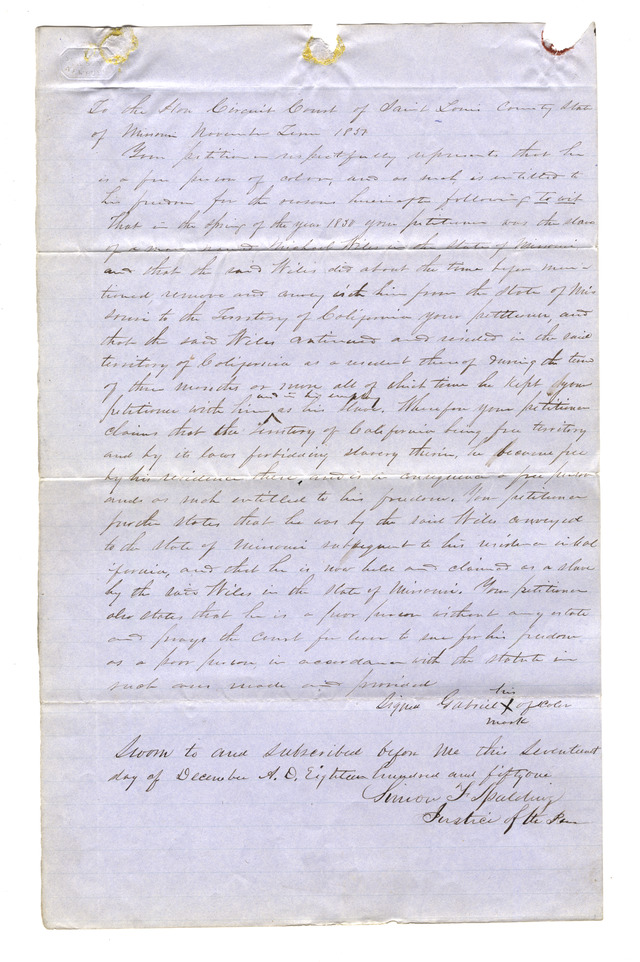 To the Hon Circuit Court of Saint Louis County State
of Missouri November Term 1851
Your petitioner respectfully represents that he
is a free person of colour, and as such is entitled to
his freedom for the reasons hereinafter following to wit
That in the Spring of the year 1850 your petitioner was the slave
of a man named Michael Wiles in the State of Missouri
and that the said Wiles did about the time before men-
tioned remove and carry with him from the State of Mis
souri to the Territory of California your petitioner, and
that the said Wiles and resided in the said
territory of California as a resident thereof during the time
of three months or more all of which time he kept your
and in his employ
petitioner with him as his slave. Wherefore your petitioner
claims that the Territory of California being free territory
and by its laws forbidding slavery therein, he became free
by his residence there, and is in consequence a free person
and as such entitled to his freedom. Your petitioner
further states that he was by the said Wiles conveyed
to the State of Missouri subsequent to his residence in Cal
ifornia, and that he is now held and claimed as a slave
by the said Wiles in the State of Missouri. Your petitioner
also states that he is a poor person without any estate
and prays the Court for leave to sue for his freedom
as a poor person in accordance with the statute in
such cases made and provided
his
Signed Gabriel X of Color
mark
Sworn to and subscribed before me this Seventeenth
day of December A. D. Eighteen hundred and fifty one
Simeon F Spalding
Justice of the Peace